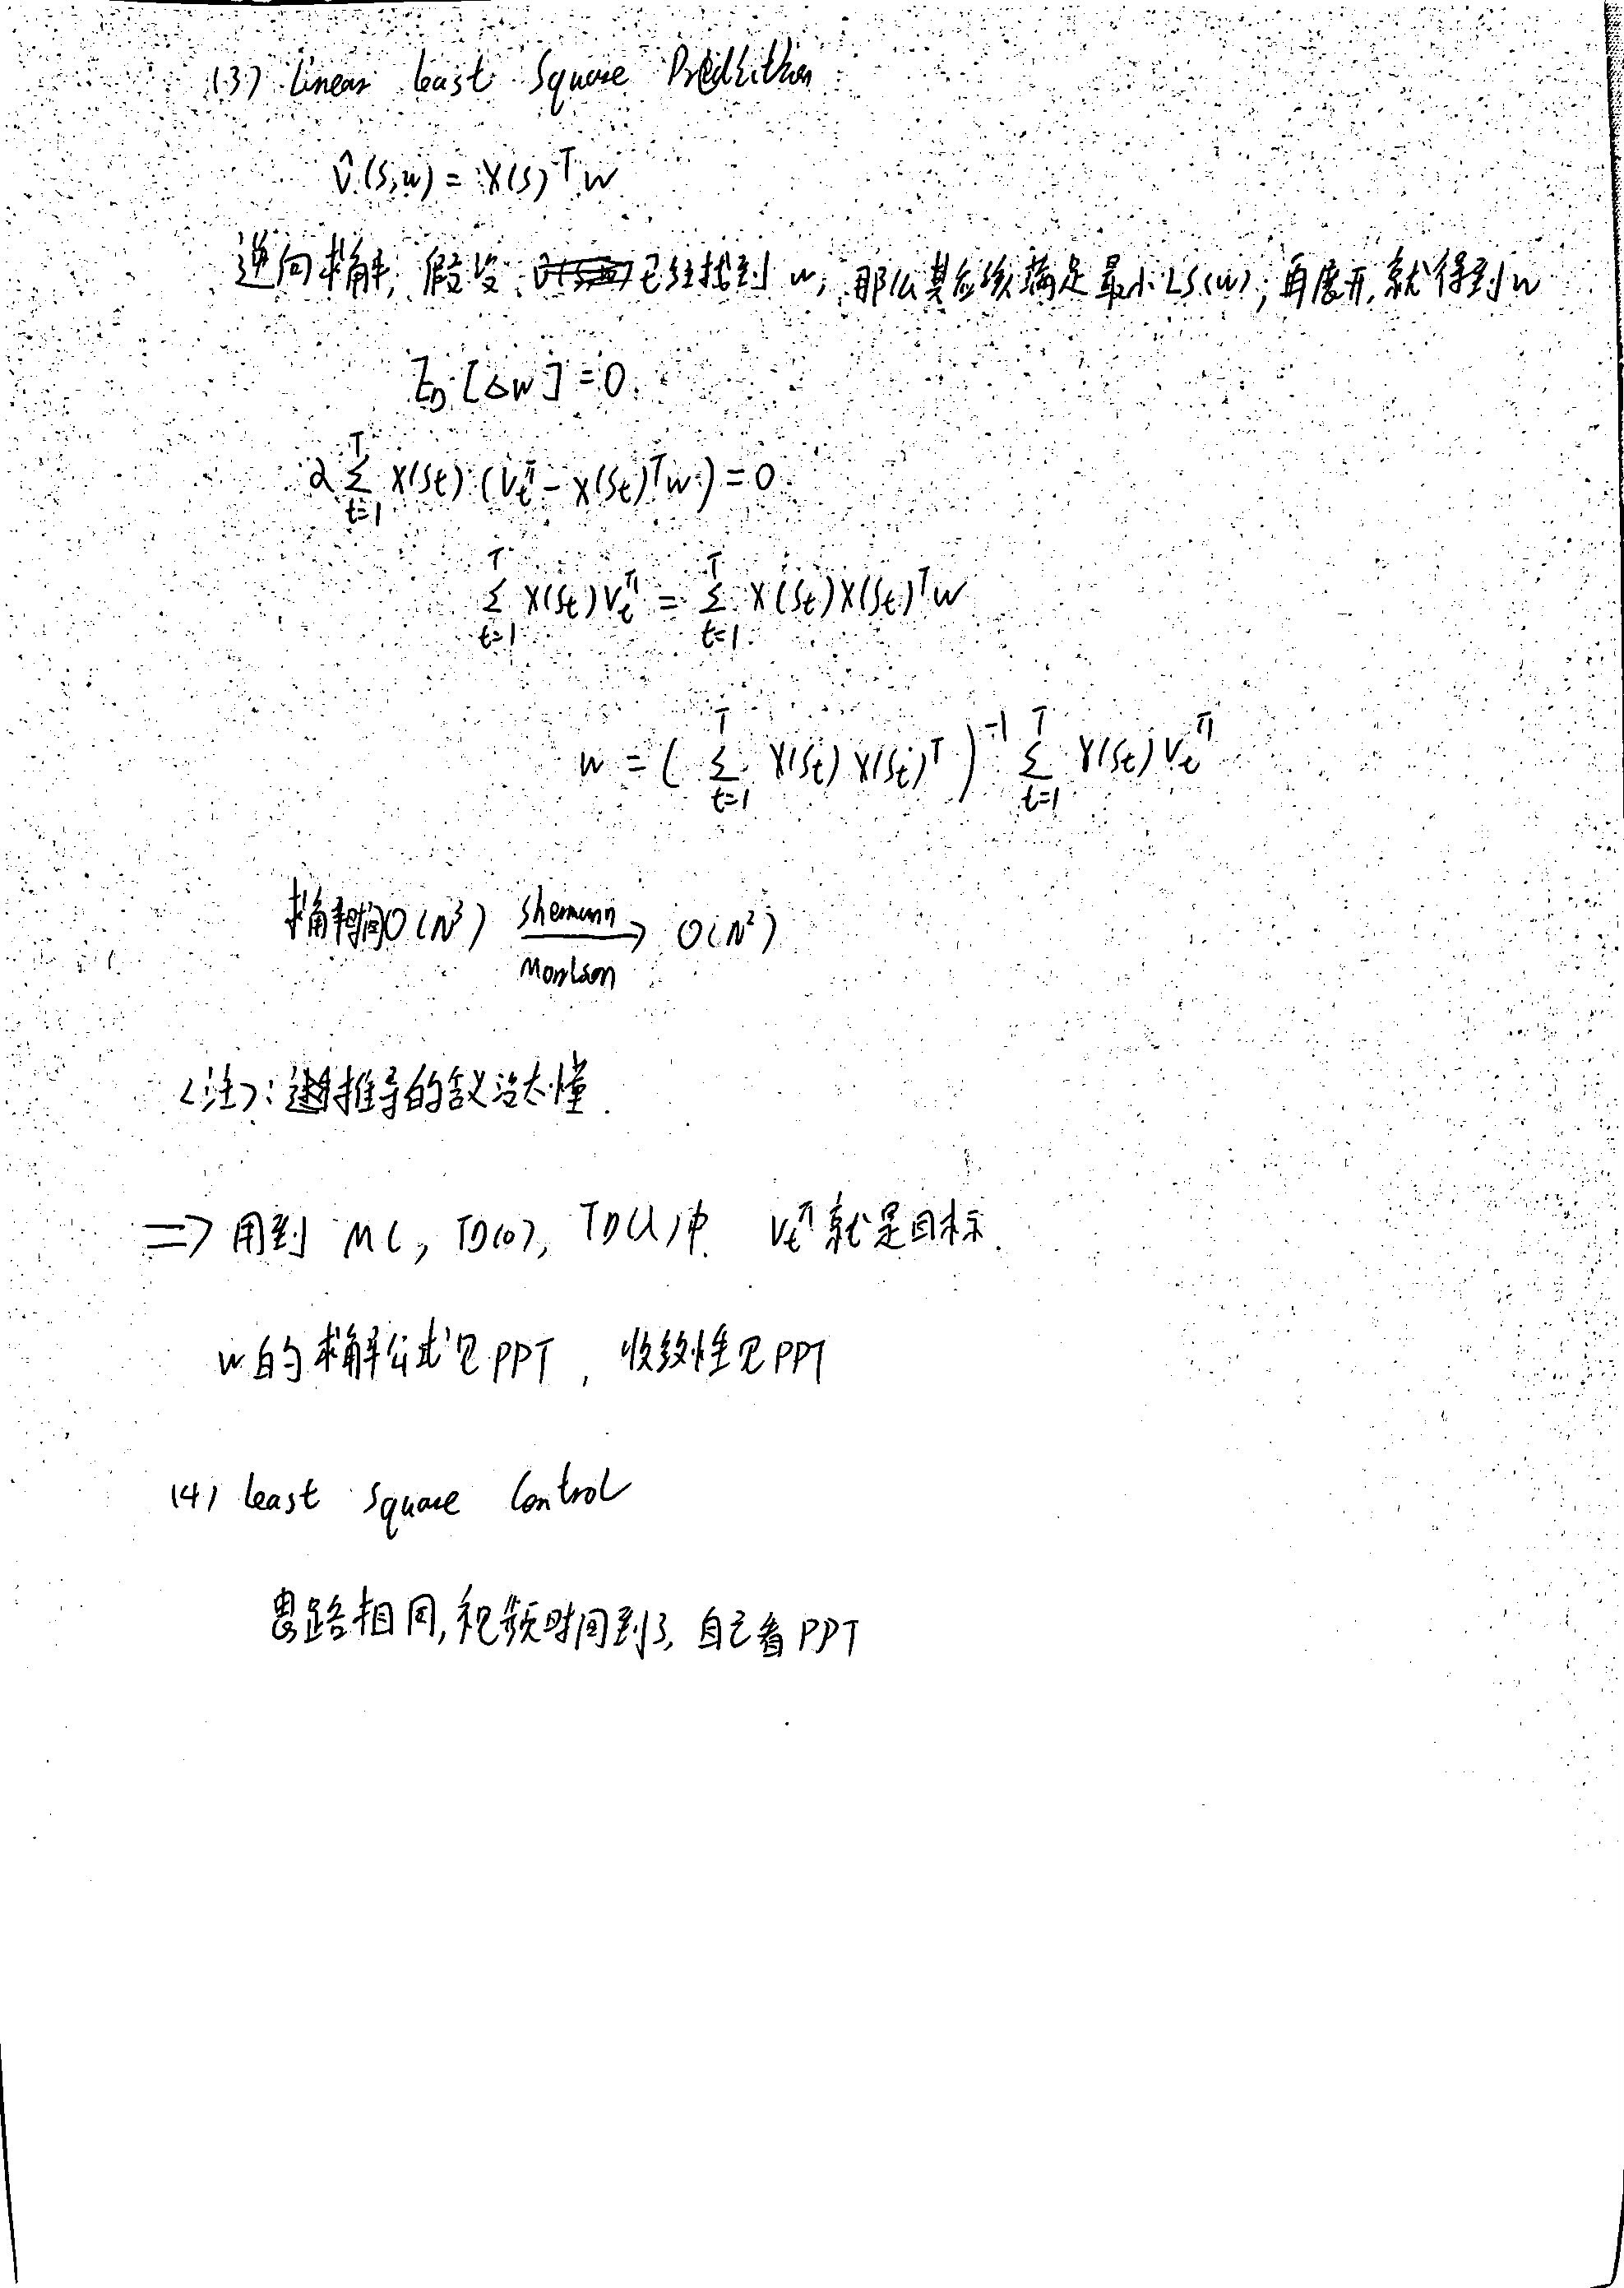 (3) Linear Least Square Prediction
v̂(s,w) = x(s)ᵀw
逆向求解, 假设已经找到 w, 那么其应该满足最小 LS(w), 再展开, 就得到 w
E_D[Δw] = 0
α Σ_{t=1}^{T} x(s_t)(v_t^π - x(s_t)ᵀw) = 0
Σ_{t=1}^{T} x(s_t)v_t^π = Σ_{t=1}^{T} x(s_t)x(s_t)ᵀw
w = (Σ_{t=1}^{T} x(s_t)x(s_t)ᵀ)^{-1} Σ_{t=1}^{T} x(s_t)v_t^π
求解时间 O(N³) → O(N²)
<注>: 推导的含义没太懂.
=> 用到 MC, TD(0), TD(λ)中. v_t^π 就是目标.
w的求解公式见PPT, 收敛性见PPT
(4) Least Square Control
思路相同, 视频时间到了, 自己看PPT